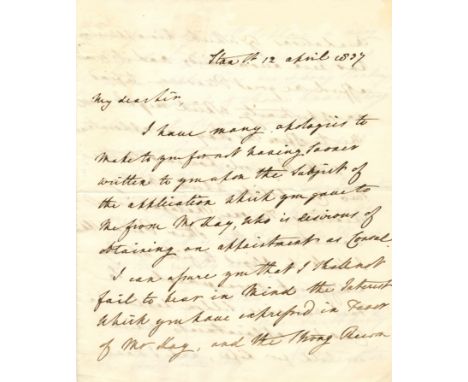 12 april 1837
My dear Sir,
I have many apologies to
make to you for not having sooner
written to you upon the subject of
the application which you gave to
me from Mr Kay, who is desirous of
obtaining an appointment as Consul.
I can assure you that I shall not
fail to bear in Mind the Interest
which you have expressed in favor
of Mr Kay, and the Strong